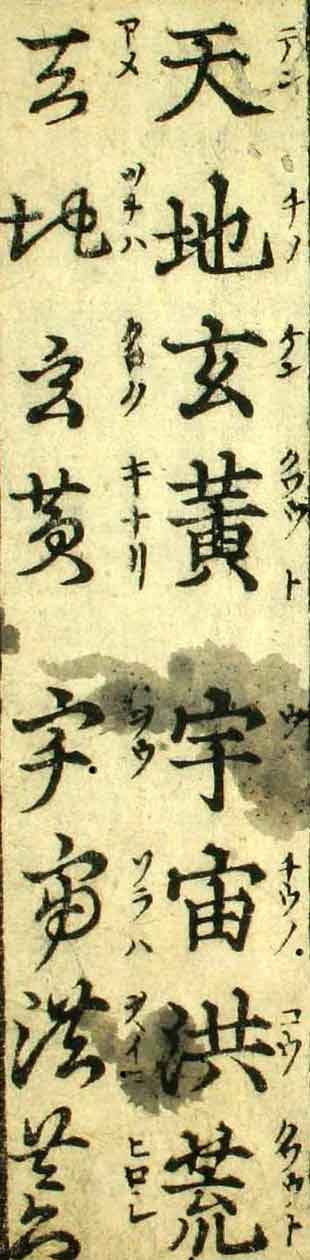 テン チノ ケン クワウト ウ チウノ コウ クワウト
天地玄黄宇宙洪荒
アメ ツチハ クロク キナリ ソラハ ヒロシ
天地玄黄宇宙洪荒